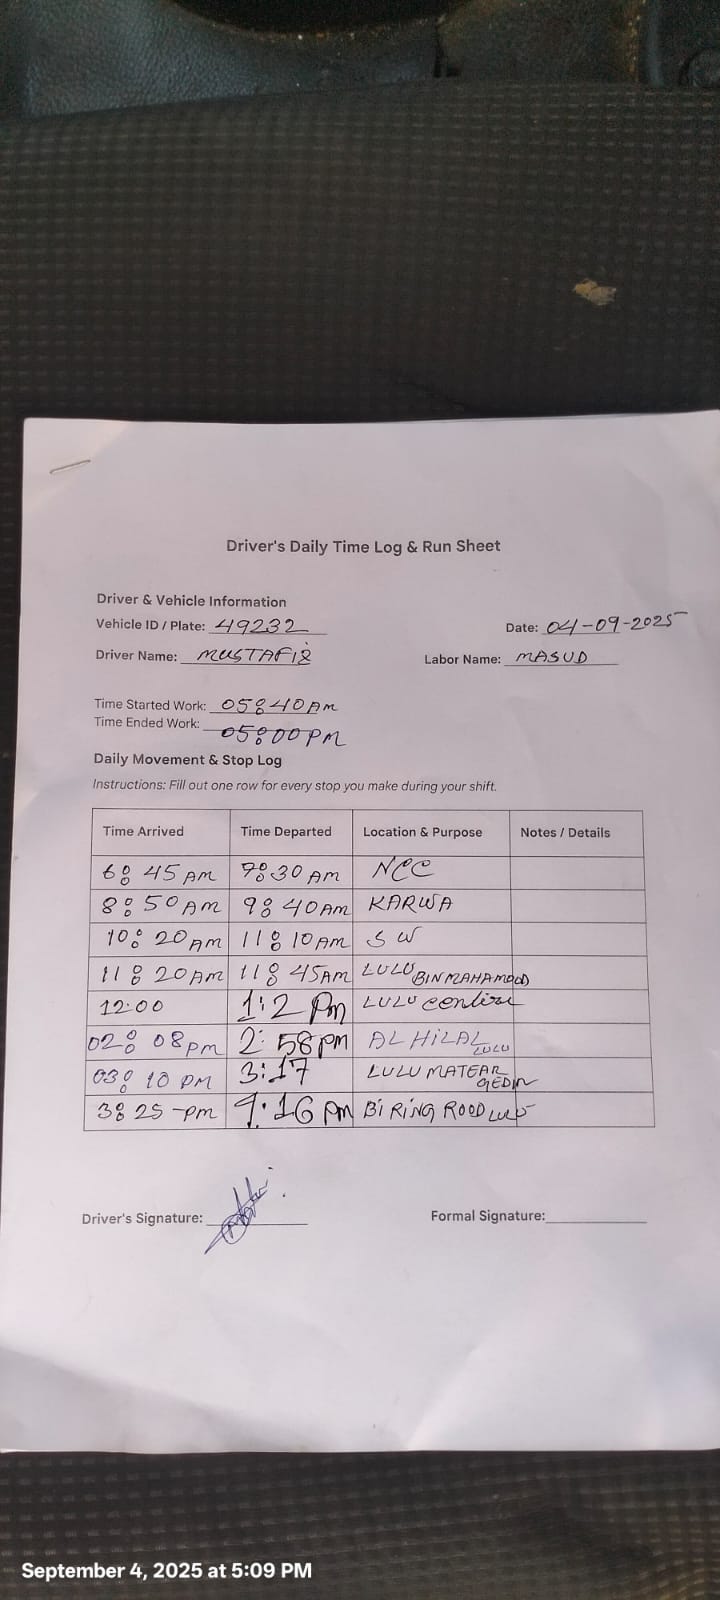 Driver's Daily Time Log & Run Sheet
Driver & Vehicle Information
Vehicle ID / Plate: 49232 Date: 04-09-2025
Driver Name: MUSTAFIZ Labor Name: MASUD
Time Started Work: 05:40 AM
Time Ended Work: 05:00 PM
Daily Movement & Stop Log
Instructions: Fill out one row for every stop you make during your shift.
Time Arrived Time Departed Location & Purpose Notes / Details
6:45 AM 7:30 AM NCC
8:50 AM 9:40 AM KARWA
10:20 AM 11:10 AM S W
11:20 AM 11:45 AM LULU BINMAHAMOOD
12:00 1:2 Pm LULU
02:08 PM 2:58 PM AL HILAL LULU
03:10 PM 3:17 LULU MATEAR GEDIN
3:25 -PM :16 PM Bi RiNG ROOD LULU
Driver's Signature: Formal Signature:
September 4, 2025 at 5:09 PM